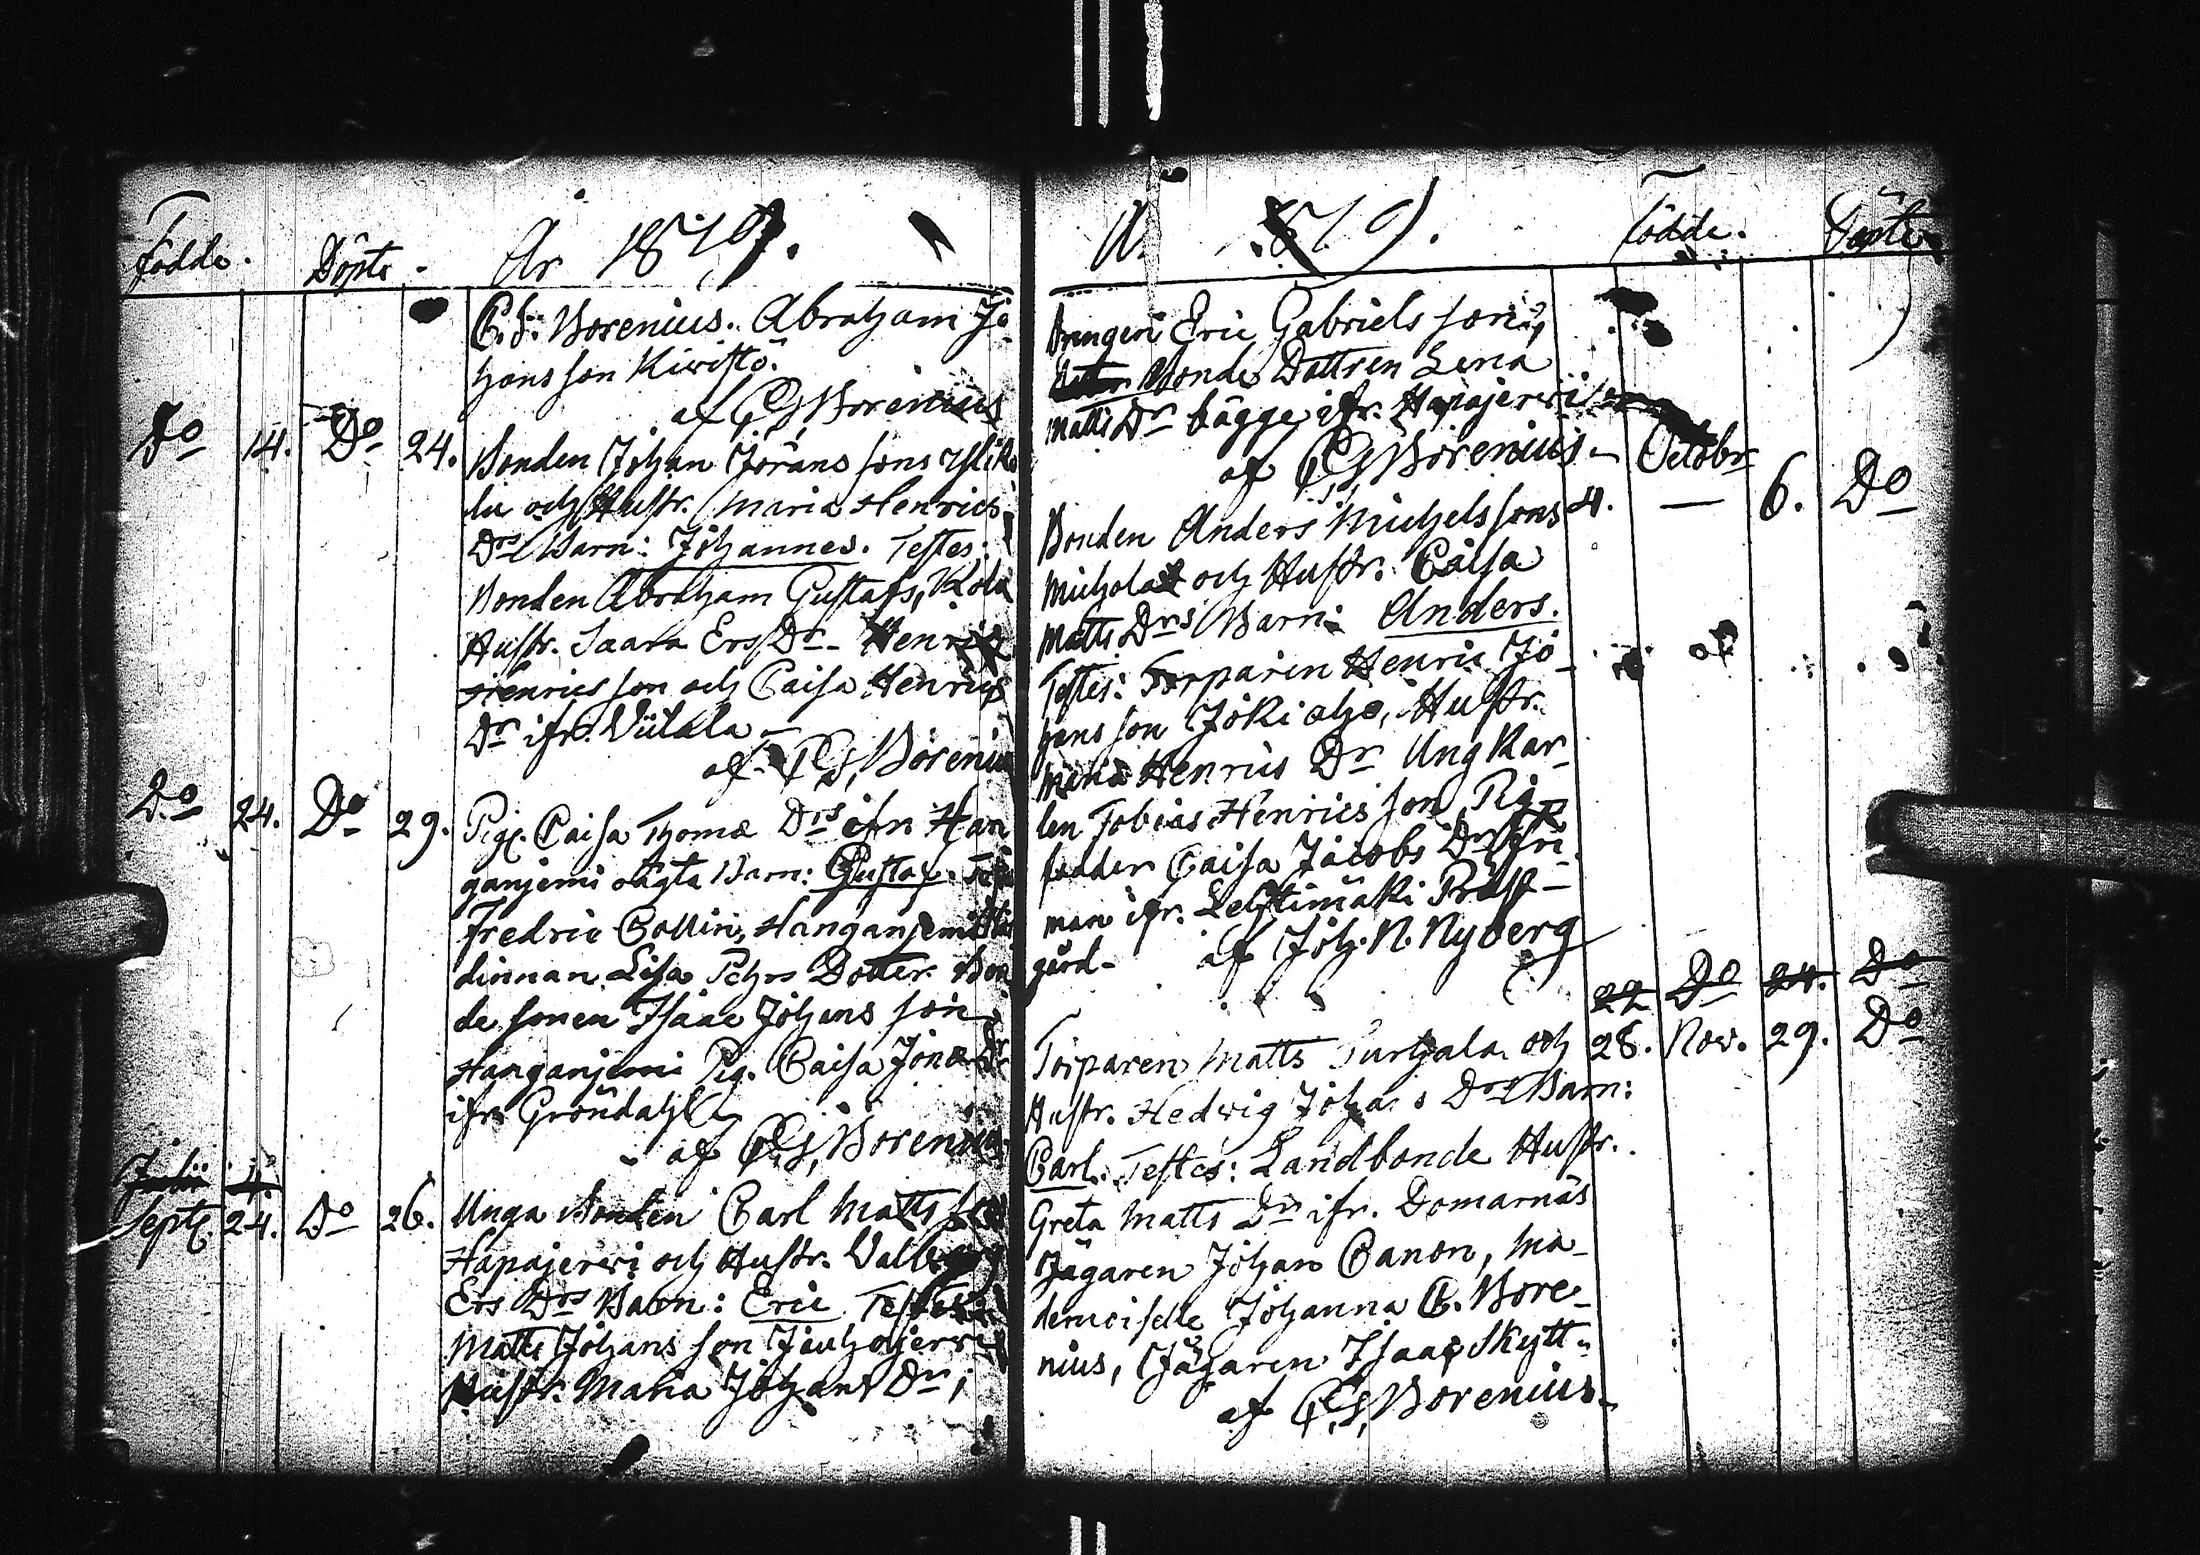 Födde. Döpte. År 1819.
C. G. Borenius. Abraham Jo-
hansson Kiwistö.
af C G Borenius
Do 14. Do 24. Bonden Johan Jörans sons
och Hustr. Maria Henrics
Drs Barn: Johannes. Testes:
Bonden Abraham Gustafs, Kola
Hustr. Saara Ers Dr. Henric
Henricsson och Caisa Henrics
Dr ifr. Wiitala
af C G Borenius
Do 24. Do 29. Pig. Caisa Thomæ Drs ifrn Han
ganjemi oägta Barn: Gustaf.
Fredric Collin, Hanganjemi
dinnan Lisa Pehrs Dotter Bon
de sonen Isaac Johans son
Hanganjemi Pig. Caisa Jonæ Dr
ifr. Gröndahl
af C G Borenius
Julii 4.
Sept. 24. Do 26. Unga Bonden Carl Matts son
Hapajerwi och Hustr. Walborg
Ers Drs Barn: Eric Testes
Matts Johans son Jouhojerwi
Hustr. Maria Johans Dr;
År 1819. Födde. Döpte.
Drengen Eric Gabriels son,
Bonde Dottren Lena
Matts Dr bägge ifr. Hapajerwi
af C G Borenius
Octobr
Bonden Anders Michelssons 4. — 6. Do
Michola och Hustr. Caisa
Matts Drs Barn: Anders.
Testes: Torparen Henric Jo-
hans son Jokiaho, Hustr.
Maria Henrics Dr Ung Kar-
len Tobias Henrics son, Pig
Caisa Jacobs Dr
man ifr. Lehtimäki Prest-
gård- af Joh. N. Nyberg
22 Do 24. Do
Torparen Matts Turhala och 28. Nov. 29. Do
Hustr. Hedwig Johans Drs Barn:
Carl. Testes: Landbonde Hustr.
Greta Matts Dr ifr. Domarnäs
Jägaren Johan Canon, Ma-
demoiselle Johanna C. Bore-
nius, Jägaren Isaac Skytt-
af C G Borenius